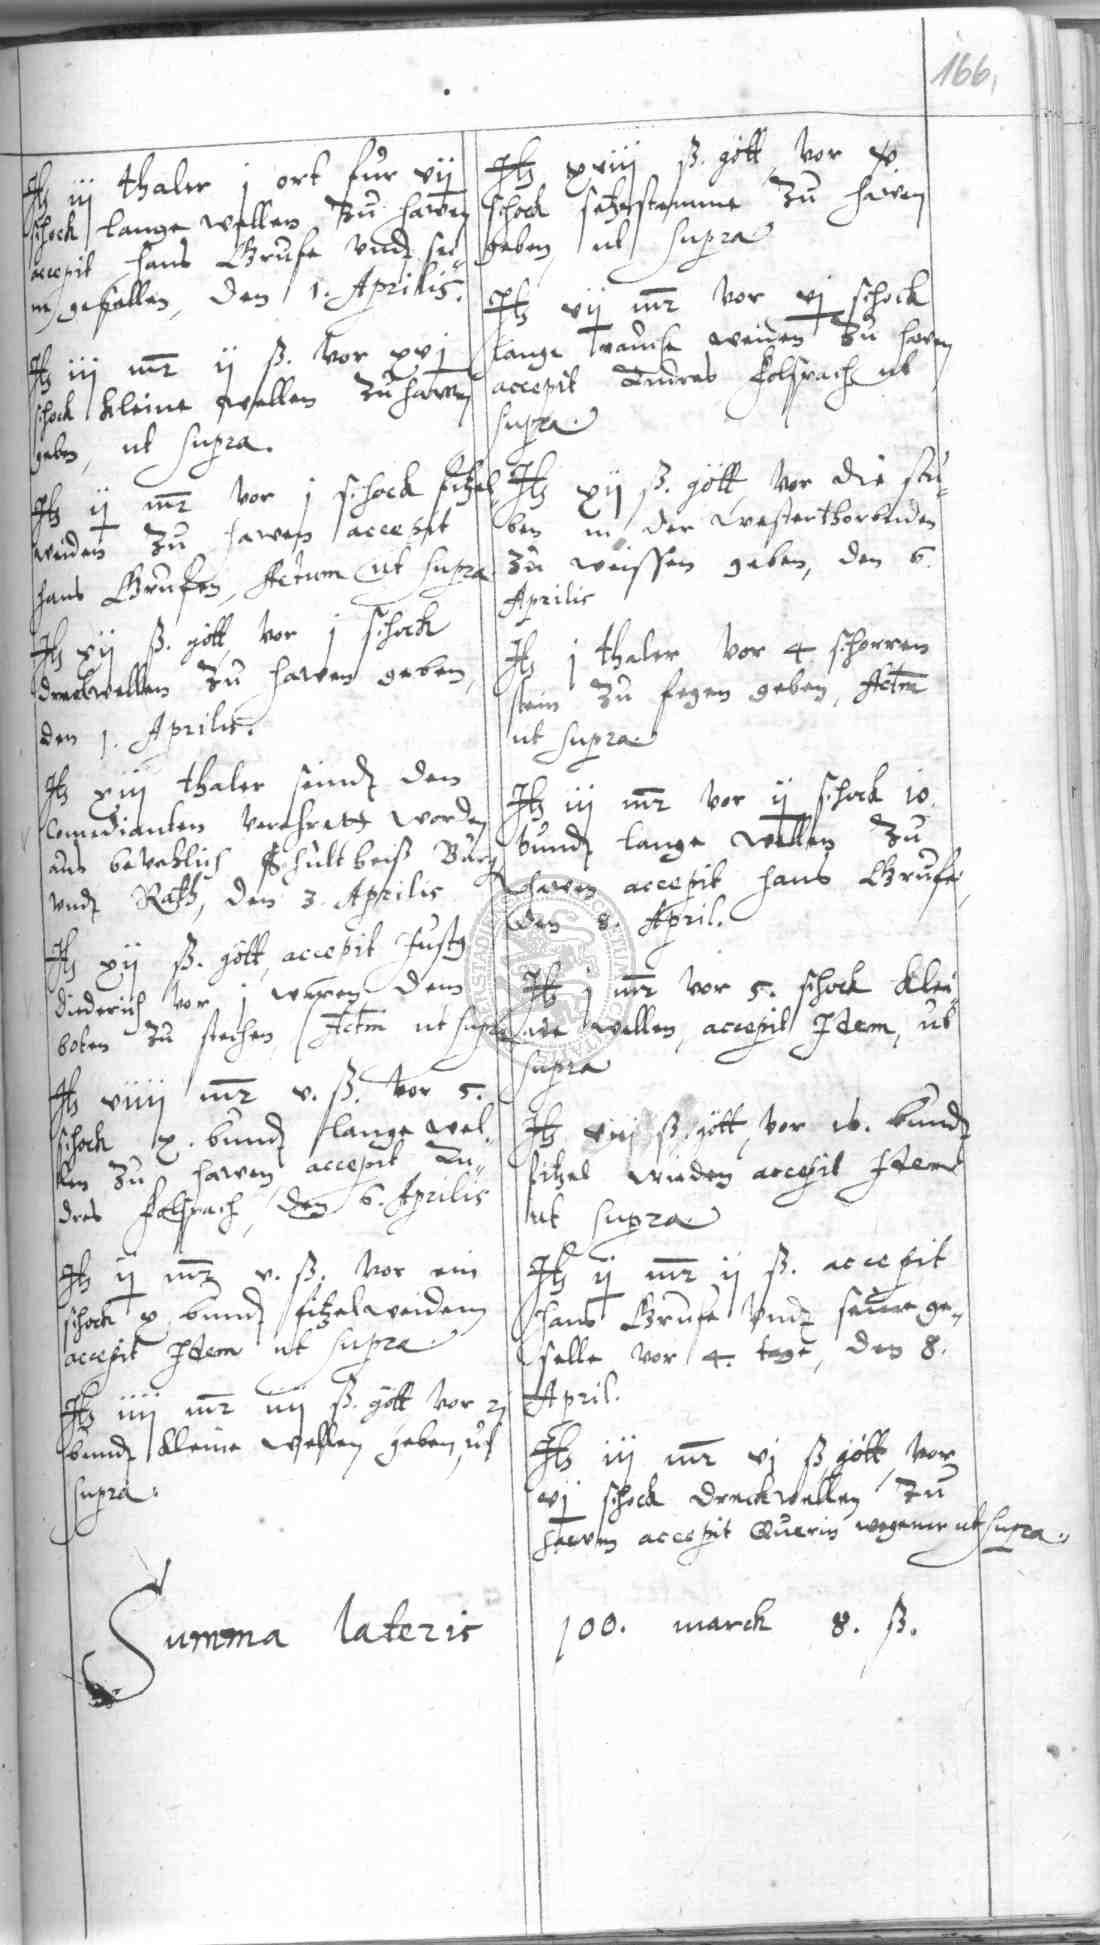 166.
Itz iij thaler j ort fur vij
schock lange wellen zu hawen
accepit hans Gruse vndt sei„
n gesellen, den 1. Aprilis.
Itz iij mr ij ß. vor xvj
schock kleine wellen zu hawen
geben, ut supra.
Itz ij mr vor j schock fitzel
weiden zu hawen accepit
hans Grusen, Actum ut supra
Itz xij ß. gött, vor j schock
dreckwellen zu hawen geben,
den 1. Aprilis.
Itz xiij thaler seindt den
Comedianten verehrett worden
aus bevehlich Schultheiß Burg
vndt Rath, den 3. Aprilis
Itz xij ß. gött, accepit Just
Diederich vor j den
boten zu stechen, Actm ut supra
Itz viiij mr v. ß. vor 5.
schock x. bundt lange wel„
len zu hawen accepit An„
dres Folspach, den 6. Aprilis
Itz ij mr v. ß. vor ein
schock x bundt fitzelweiden
accepit Idem ut supra.
Itz iiij mr iiij ß. gött vor
bundt kleine wellen geben, ut
supra.
Itz xviij ß. gött, vor x
schock setzstemme zu hawen
geben, ut supra
Itz vij mr vor vj schock
lange weiden zu hawen
accepit Andres Folspach ut
supra.
Itz xij ß. gött, vor die stu„
ben in der Westerthorbuden
zu weissen geben, den 6.
Aprilis
Itz j thaler vor 4 schorren
stein zu fegen geben, Actm
ut supra
Itz iij mr vor ij schock 10.
bundt lange wellen zu
hawen accepit hans Gruse,
den 8. April.
Itz j mr vor 5. schock klei„
ne wellen, accepit Idem, ut
supra
Itz viij ß. gött, vor 16. bundt
fitzel wieden accepit Idem
ut supra.
Itz ij mr ij ß. accepit
hans Gruse vndt seine ge„
selle vor 4. tage, den 8.
April.
Itz iij mr vj ß gött, vor
vij schock dreckwellen zu
hawen accepit Querin wegener ut supra.
Summa lateris 100. march 8. ß.